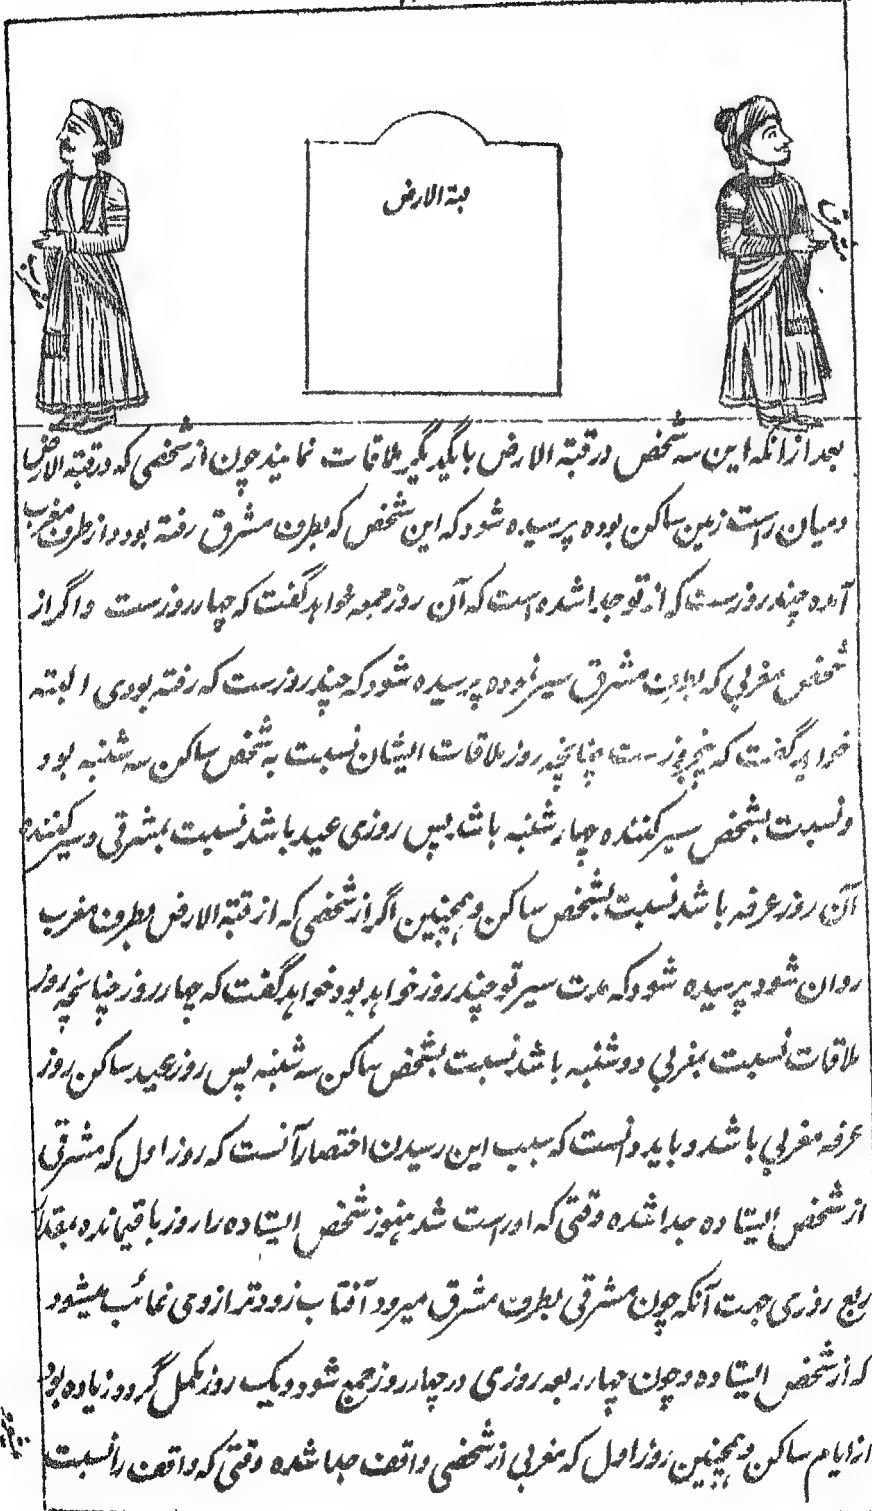 قبة الارض
مشرق
مغرب
بعد از انکه این سه شخص در قبة الارض با یکدیگر ملاقات نمایند چون از شخصی که در قبة الارض
و میان راست زمین ساکن بوده پرسیده شود که این شخص که بطرف مشرق رفته بود و از طرف مغرب
آمده چند روزست که از تو جدا شده است که آن روز جمعه خواهد گفت که چهار روزست و اگر از
شخص مغربی که بطرف مشرق سیر نموده پرسیده شود که چند روزست که رفته بودی البته
خواهد گفت که پنجروزست چنانچه روز ملاقات ایشان نسبت به شخص ساکن سه شنبه بود
و نسبت بشخص سیر کننده چهار شنبه باشد پس روزی عید باشد نسبت بمشرقی و سیر کننده
آن روز عرفه باشد نسبت بشخص ساکن و همچنین اگر از شخصی که از قبة الارض بطرف مغرب
روان شود پرسیده شود که مدت سیر تو چند روز خواهد بود خواهد گفت که چهار روز چنانچه روز
ملاقات نسبت بمغربی دو شنبه باشد نسبت بشخص ساکن سه شنبه پس روز عید ساکن روز
عرفه مغربی باشد و باید دانست که سبب این رسیدن اختصار آنست که روز اول که مشرقی
از شخص ایستاده جدا شده وقتی که او راست شد هنوز شخص ایستاده را روز باقیمانده بمقدار
ربع روزی جهت آنکه چون مشرقی بطرف مشرق میرود آفتاب زودتر از وی غائب میشود
که از شخص ایستاده و چون چهار ربعه روزی در چهار روز جمع شود و یک روز مکمل گردد زیاده بود
از ایام ساکن و همچنین روز اول که مغربی از شخصی واقف جدا شده وقتی که واقف را نسبت